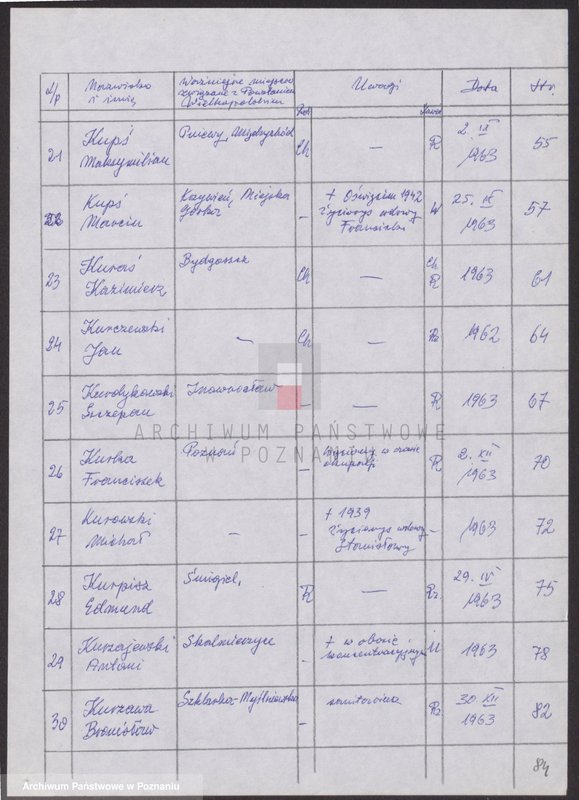 L/p Nazwisko i imię Ważniejsze miejsca związane z Powstaniem Wielkopolskim Uwagi Data Str.
21 Kupś Maksymilian Pniewy, Międzychód Ch — R 2. IX 1963 55
22 Kupś Marcin Kaźmierz, Miejska Górka - + Oświęcim 1942 życiorys wdowy Franciszki W 25. IX 1963 57
23 Kuraś Kazimierz Bydgoszcz Ch — Ch R 1963 61
24 Kurczewski Jan — Ch — Rz 1962 64
25 Szczepan Inowrocław - — R 1963 67
26 Kurka Franciszek Poznań - w czasie okupacji R 2. XII 1963 70
27 Kurowski Michał - - + 1939 życiorys wdowy Stanisławy - 1963 72
28 Kurpisz Edmund Śmigiel, R — Rz 29. IV 1963 75
29 Kurzajewski Antoni Skalmierzyce - + w obozie koncentracyjnym U 1963 78
30 Kurzawa Bronisław Szklarka-Myślniewska - sanitariusz Rz 30. XII 1963 82
84
ARCHIWUM PAŃSTWOWE
W POZNANIU
Archiwum Państwowe w Poznaniu